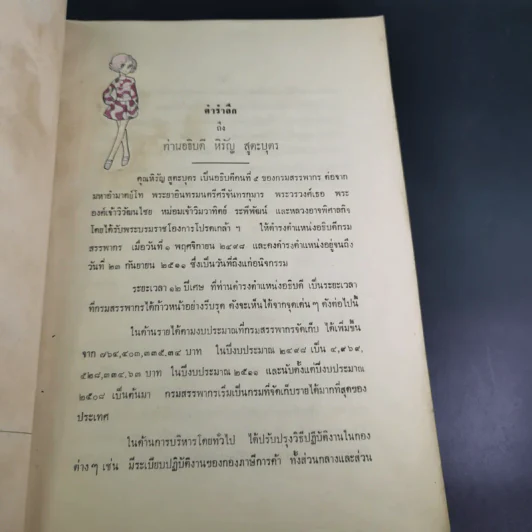 คำรำลึก
ถึง
ท่านอธิบดี หิรัญ สูตะบุตร
คุณหิรัญ สูตะบุตร เป็นอธิบดีคนที่ ๕ ของกรมสรรพากร ต่อจาก
มหาอำมาตย์โท พระยาอินทรมนตรีศรีจันทรกุมาร พระวรวงศ์เธอ พระ
องค์เจ้าวิวัฒนไชย หม่อมเจ้าวิมวาทิตย์ ระพีพัฒน์ และหลวงอาจพิศาลกิจ
โดยได้รับพระบรมราชโองการโปรดเกล้า ฯ ให้ดำรงตำแหน่งอธิบดีกรม
สรรพากร เมื่อวันที่ ๑ พฤศจิกายน ๒๔๙๘ และคงดำรงตำแหน่งอยู่จนถึง
วันที่ ๒๓ กันยายน ๒๕๑๑ ซึ่งเป็นวันที่ถึงแก่อนิจกรรม
ระยะเวลา ๑๒ ปีเศษ ที่ท่านดำรงตำแหน่งอธิบดี เป็นระยะเวลา
ที่กรมสรรพากรได้ก้าวหน้าอย่างรีบรุด ดังจะเห็นได้จากจุดเด่น ๆ ดังต่อไปนี้
ในด้านรายได้ตามงบประมาณที่กรมสรรพากรจัดเก็บ ได้เพิ่มขึ้น
จาก ๘๖๔,๔๐๓,๓๓๕.๓๔ บาท ในปีงบประมาณ ๒๔๙๘ เป็น ๔,๙๖๙,
๕๒๘,๓๓๔.๖๓ บาท ในปีงบประมาณ ๒๕๑๑ และนับตั้งแต่ปีงบประมาณ
๒๕๐๘ เป็นต้นมา กรมสรรพากรเริ่มเป็นกรมที่จัดเก็บรายได้มากที่สุดของ
ประเทศ
ในด้านการบริหารโดยทั่วไป ได้ปรับปรุงวิธีปฏิบัติงานในกอง
ต่าง ๆ เช่น มีระเบียบปฏิบัติงานของกองภาษีการค้า ทั้งส่วนกลางและส่วน